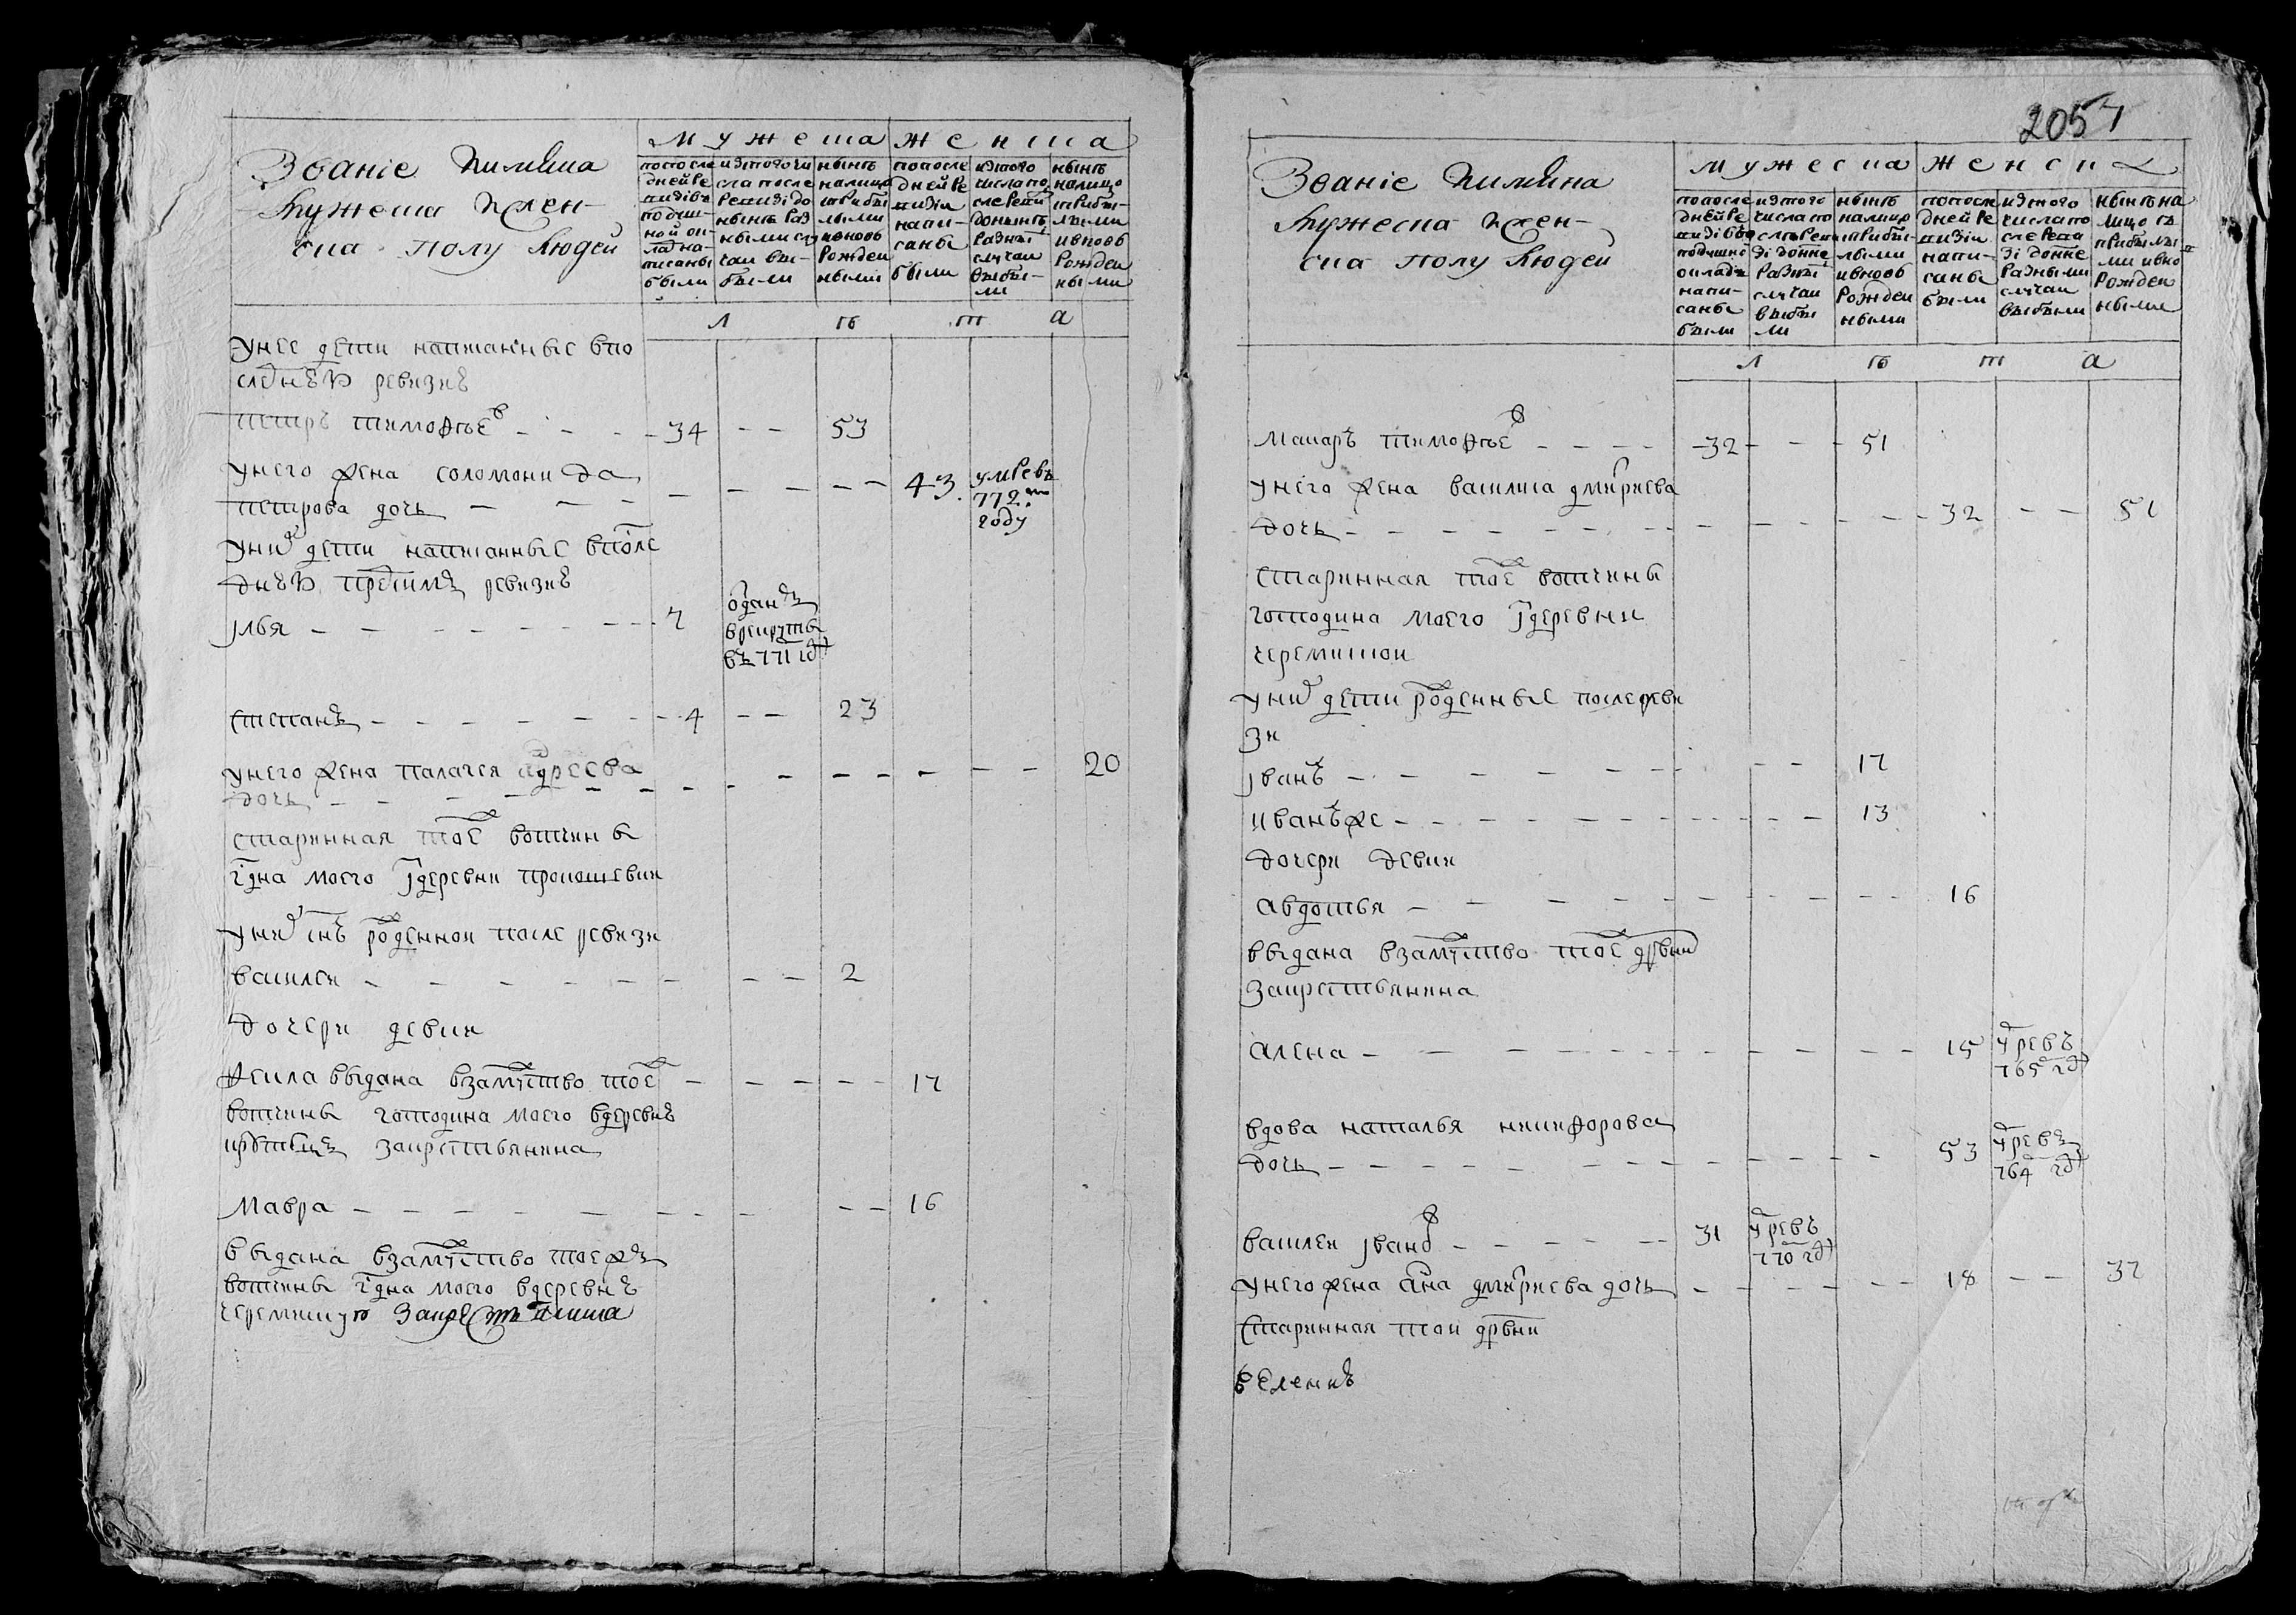 2057
Званіе и имяна
Мужеска и жен-
ска полу людей
Мужеска Женска
попосле
дней ре
визіи въ
подуш-
ной ок-
лад на-
писаны
были
из того чи
сла после
ревизіи до
нынѣ раз
ными слу
чаи вы-
были
нынѣ
налицо
с прибы
лыми
и вновь
рожден
ными
попосле
дней ре
визіи
напи-
саны
были
из того
числа по
сле реви
до нынѣ
разны
случаи
выбы-
ли
нынѣ
налицо
с прибы-
лыми
и вновь
рожден
ными
л ѣ т а
у нее дети написанные в по
следнеѣ ревизиѣ
петръ тимофѣевъ 34 53
у него жена соломонида
петрова дочь 43 умре въ
772м
году
у них дети написанные в после
днеѣ пред сим ревизиѣ
илья 7 отдан
в рекруты
въ 771 году
степанъ 4 23
у него жена палагея андреева 20
дочь
старинная тоеж вотчины
гдна моего деревни прокошевки
у них снъ рожденной после ревизи
василеи 2
дочери девки
фекла выдана в замужство тоеж 17
вотчины господина моего в деревнѣ
за крестьянина
мавра 16
выдана в замужство тоежъ
вотчины гдна моего в деревнѣ
черемискую за крестьянина
Званіе и имяна
Мужеска и жен-
ска полу людей
Мужеска Женск
попосле
дней ре
визіи въ
подушно
окладъ
напи-
саны
были
из того
числа по
сле реви
зі до нне
разны
случаи
выбы
ли
нынѣ
налицо
с прибы-
лыми
и вновь
рожден
ными
попосле
дней ре
визіи
напи-
саны
были
из того
числа по
сле реви
зі до нне
разными
случаи
выбыли
нынѣ на
лицо съ
прибылы
ми и вно
рожден
ными
л ѣ т а
макаръ тимофѣевъ 32 51
у него жена василиса дмитриева
дочь 32 51
старинная тоеж вотчины
господина моего деревни
черемиской
у них дети рожденные после реви
зи
иванъ 17
иванъ же 13
дочери девки
авдотья 16
выдана в замужство тоеж дрвни
за крестьянина
алена 15 умре въ
765 году
вдова наталья никифорова
дочь 53 умре въ
764 году
василеи ивановъ 31 умре въ
770 году
у него жена анна дмитриева дочь 18 37
старинная той дрвни